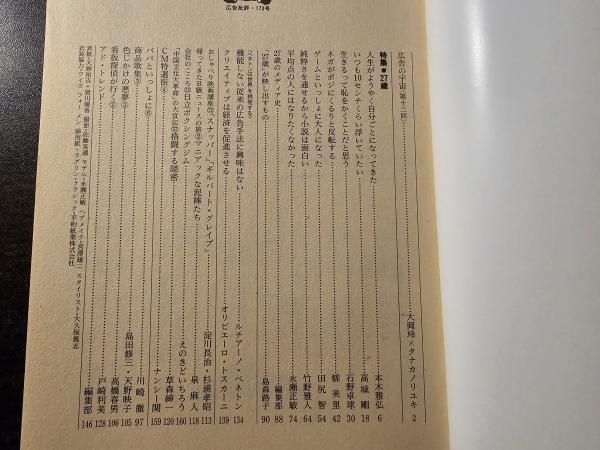 広告批評・173号
広告の宇宙(第十二回) 大岡玲×タナカノリユキ 2
特集●27歳
人生がようやく自分ごとになってきた 本木雅弘 6
いつも10センチくらい浮いていたい 高城 剛 18
生きるって恥をかくことだと思う 石野卓球 30
ネガがポジにくるりと反転する 柳 美里 42
ゲームといっしょに大人になった 田尻 智 54
純粋さを通せるから小説は面白い 竹野雅人 64
平均点の人にはなりたくなかった 永瀬正敏 74
27歳のメディア史 編集部 88
「27歳」が映し出すもの 島森路子 90
〈ベネトンは世界を挑発する〉
機能しない従来の広告手法に興味はない ルチアーノ・ベネトン 134
クリエイティブは経済を促進させる オリビエーロ・トスカーニ 139
おしゃべり映画講座㉒「スナッパー」「ギルバート・グレイプ」 淀川長治・杉浦孝昭 113
帰ってきたB級ニュースの旅⑧マニアックな泥棒たち 泉 麻人 118
会社のこころ㉓日立ボクシングジム えのきどいちろう 120
「中国文化大革命」の大宣伝㊲格闘する隠密 草森紳一 160
CM特選街④ ナンシー関 159
パパといっしょに⑥ 川崎 徹 97
商品歌集③ 島田修三・天野映子 105
色じかけの悪夢③ 高橋春男 106
看板探偵が行く② 戸崎利美 128
アド・トレンド 編集部 146
表紙・天野祐吉+宮川優香 撮影・佐藤英通 モデル・永瀬正敏 ヘアメイク・
スタイリスト・大久保篤志